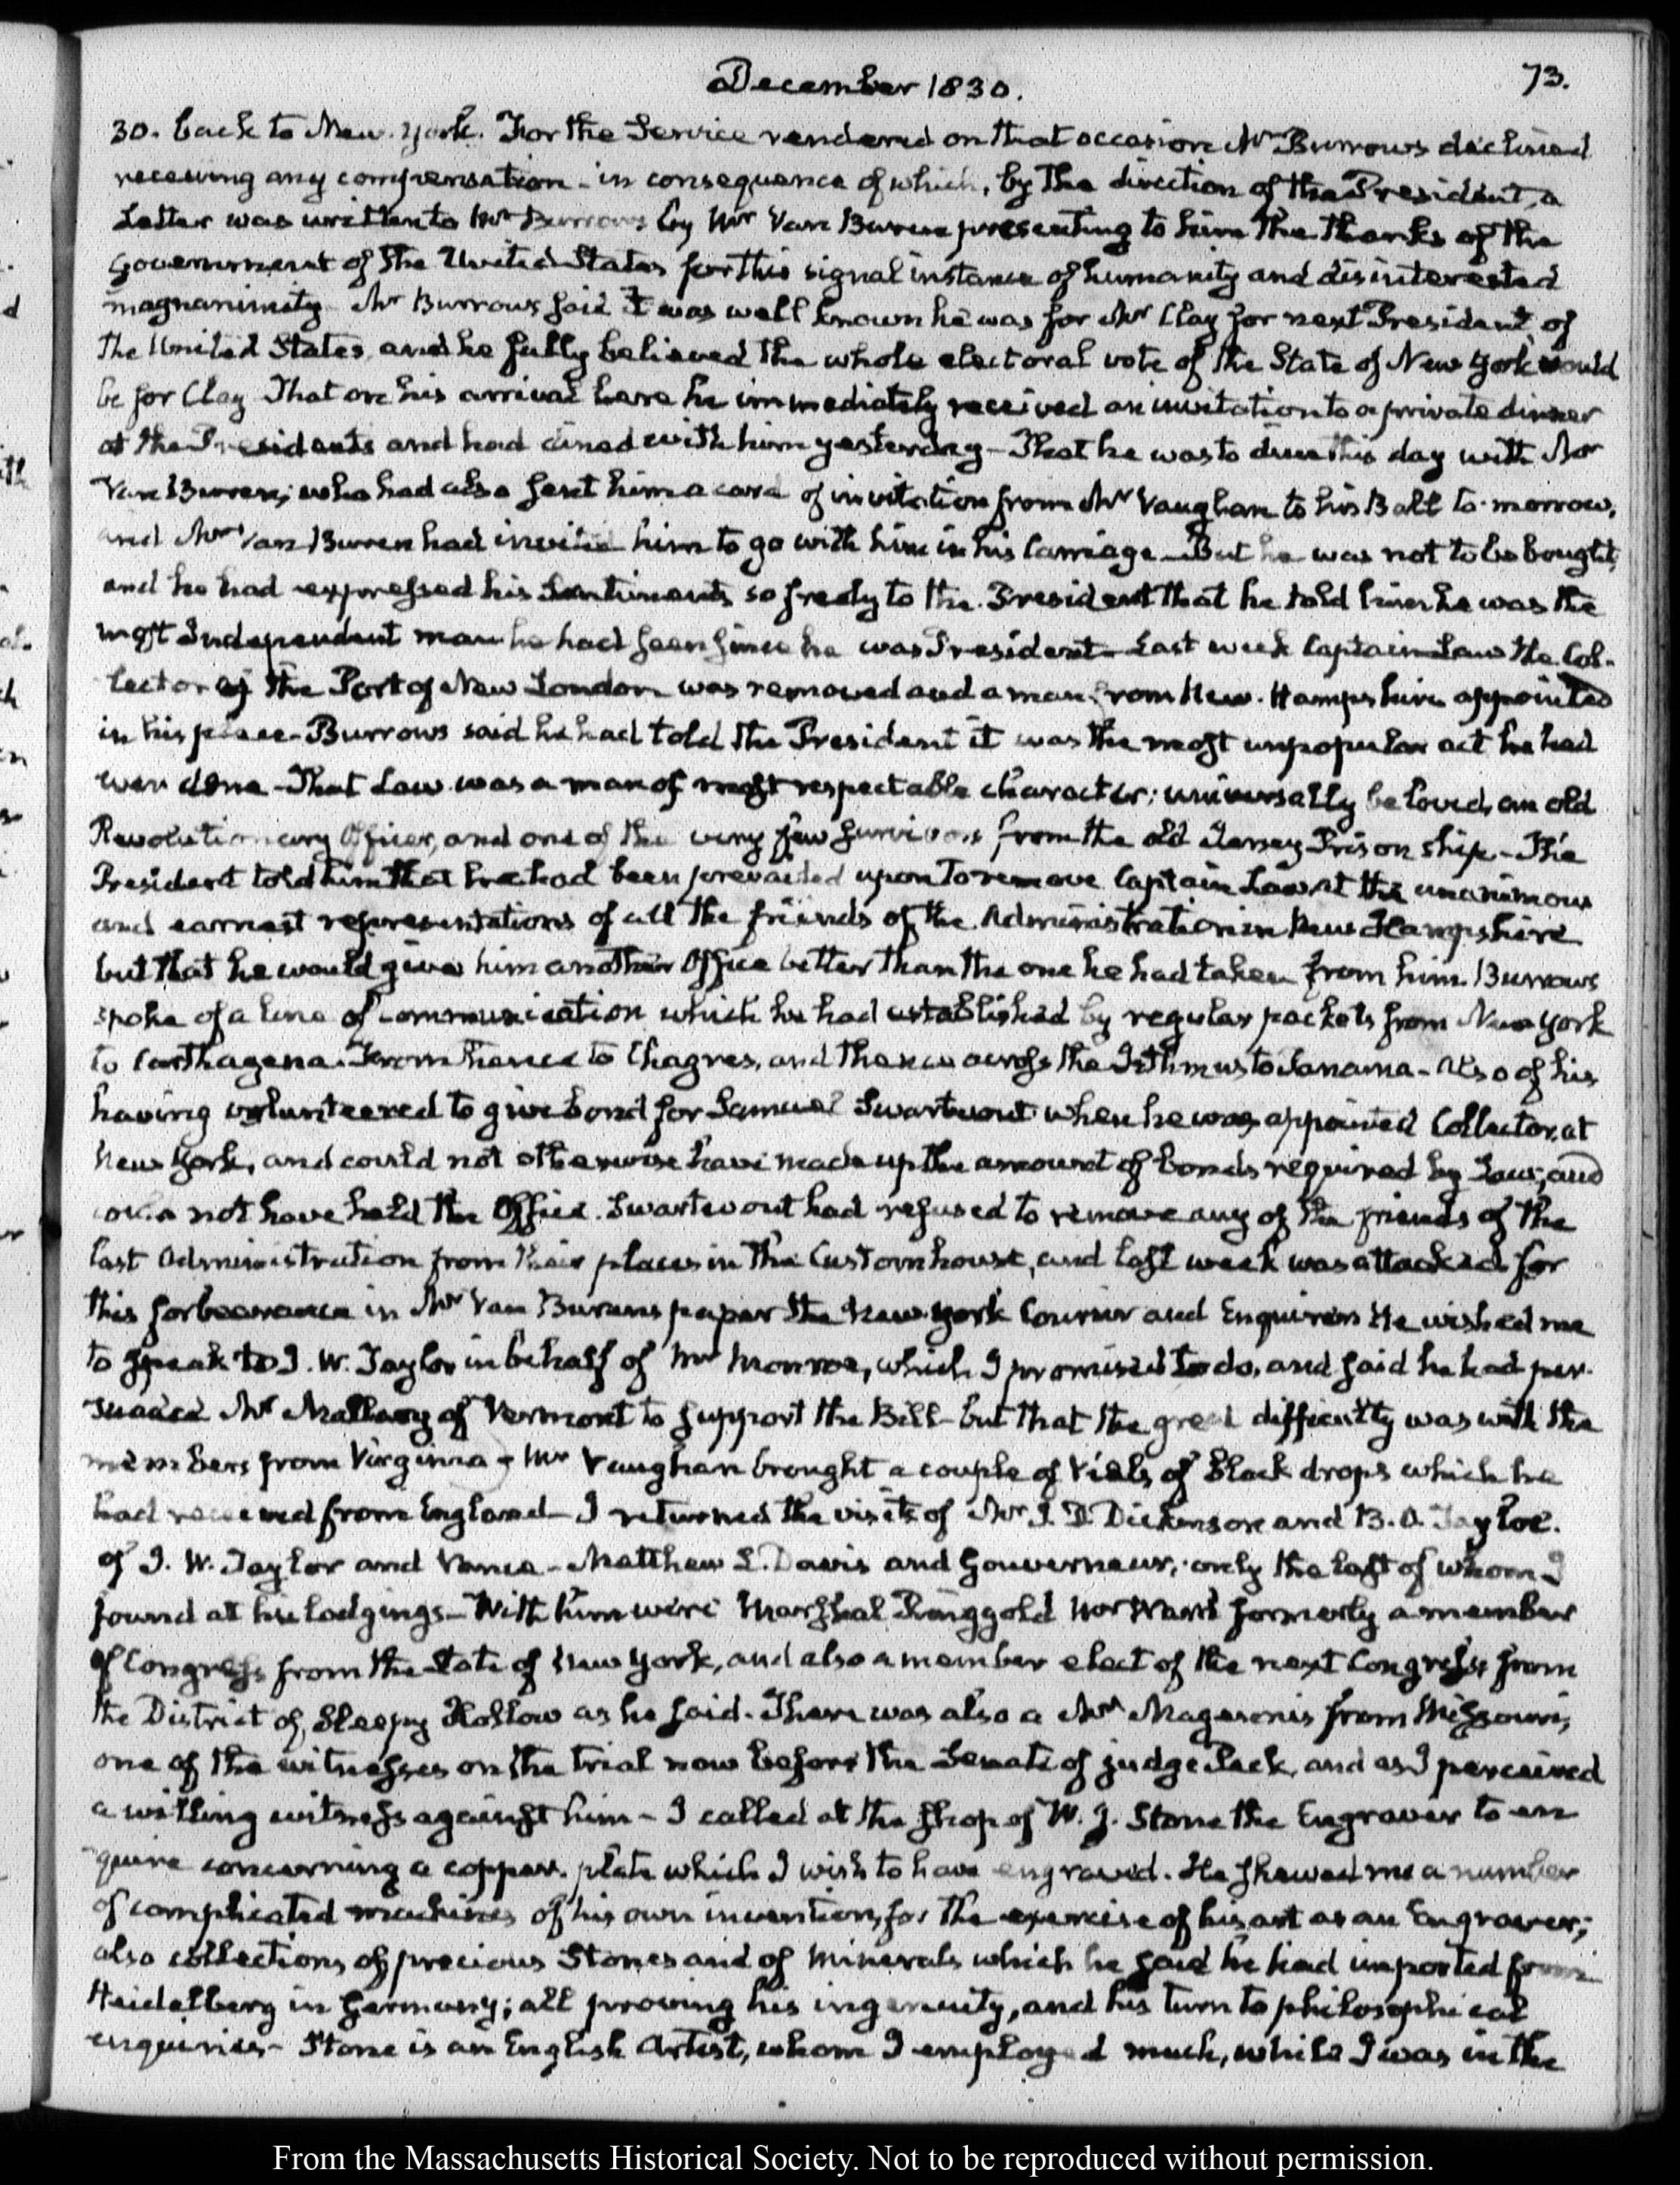 December 1830.
73.
30. back to New-York. For the Service rendered on that occasion Mr Burrows declined
receiving any compensation - in consequence of which, by the direction of the President, a
Letter was written to Mr Burrows by Mr Van Buren presenting to him the thanks of the
Government of the United States for this signal instance of humanity and disinterested
magnanimity. Mr Burrows said it was well known he was for Mr Clay for next President of
the United States, and he fully believed the whole electoral vote of the State of New York would
be for Clay. That on his arrival here he immediately received an invitation to a private dinner
at the Presidents and had dined with him yesterday - That he was to dine this day with Mr
Van Buren; who had also sent him a card of invitation from Mr Vaughan to his Ball to-morrow,
and Mr Van Buren had invited him to go with him in his Carriage - But he was not to be bought,
and he had expressed his Sentiments so freely to the President that he told him he was the
most Independent man he had seen since he was President - Last week Captain Law the Col-
lector of the Port of New London was removed and a man from New-Hampshire appointed
in his place - Burrows said he had told the President it was the most unpopular act he had
ever done - That Law was a man of most respectable character; universally beloved, an old
Revolutionary Officer, and one of the very few survivors from the old Jersey Prison ship - The
President told him that he had been prevailed upon to remove Captain Law at the unanimous
and earnest representations of all the friends of the Administration in New Hampshire
but that he would give him another Office better than the one he had taken from him. Burrows
spoke of a line of communication which he had established by regular packets from New York
to Carthagena. From thence to Chagres, and thence across the Isthmus to Panama - Also of his
having volunteered to give bond for Samuel Swartwout when he was appointed Collector at
New York, and could not otherwise have made up the amount of bonds required by Law; and
could not have held the Office. Swartwout had refused to remove any of the friends of the
last Administration from their places in the Custom house, and last week was attacked for
this forbearance in Mr Van Burens paper the New York Courier and Enquirer. He wished me
to speak to J. W. Taylor in behalf of Mr Monroe, which I promised to do, and said he had per-
suaded Mr Mallary of Vermont to support the Bill - but that the great difficulty was with the
members from Virginia - Mr Vaughan brought a couple of Vials of Black drops which he
had received from England - I returned the visits of Mr J. D. Dickinson and B. O. Tayloe.
of J. W. Taylor and Vance - Matthew L. Davis and Gouverneur; only the last of whom I
found at his lodgings - With him were Marshal Ringgold Mr Ward formerly a member
of Congress from the State of New York, and also a member elect of the next Congress from
the District of Sleepy Hollow as he said. There was also a Mr Magenis from Missouri,
one of the witnesses on the trial now before the Senate of judge Peck, and as I perceived
a willing witness against him - I called at the shop of W. J. Stone the Engraver to en
quire concerning a copper-plate which I wish to have engraved. He shewed me a number
of complicated machines of his own invention, for the exercise of his art as an Engraver;
also collections of precious Stones and of Minerals which he said he had imported from
Heidelberg in Germany; all proving his ingenuity, and his turn to philosophical
enquiries - Stone is an English Artist, whom I employed much, while I was in the
From the Massachusetts Historical Society. Not to be reproduced without permission.